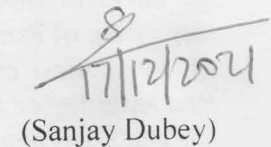 17/12/2021
(Sanjay Dubey)